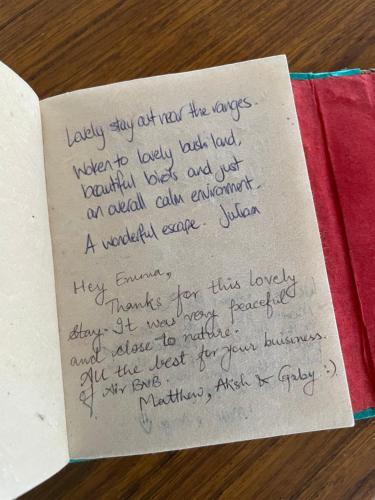 Lovely stay out near the ranges.
Woken to lovely bush land,
beautiful birds and just
an overall calm environment.
A wonderful escape. Julian
Hey Emma,
Thanks for this lovely
stay. It was very peaceful
and close to nature.
All the best for your business.
of Air BnB.
Matthew, Aksh & Gaby :)